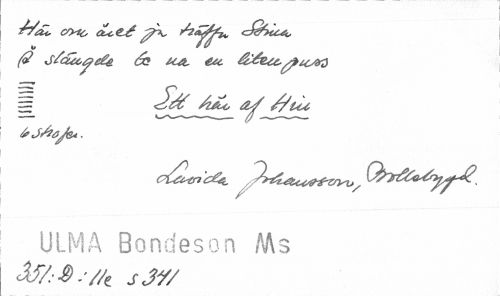 Här om året ja träffa Stina
Å stängde te na en liten puss
Ett hår af Hin
6 strofer.
Lovida Johansson, Bollebygd.
ULMA Bondeson Ms
351:D:11e s 341